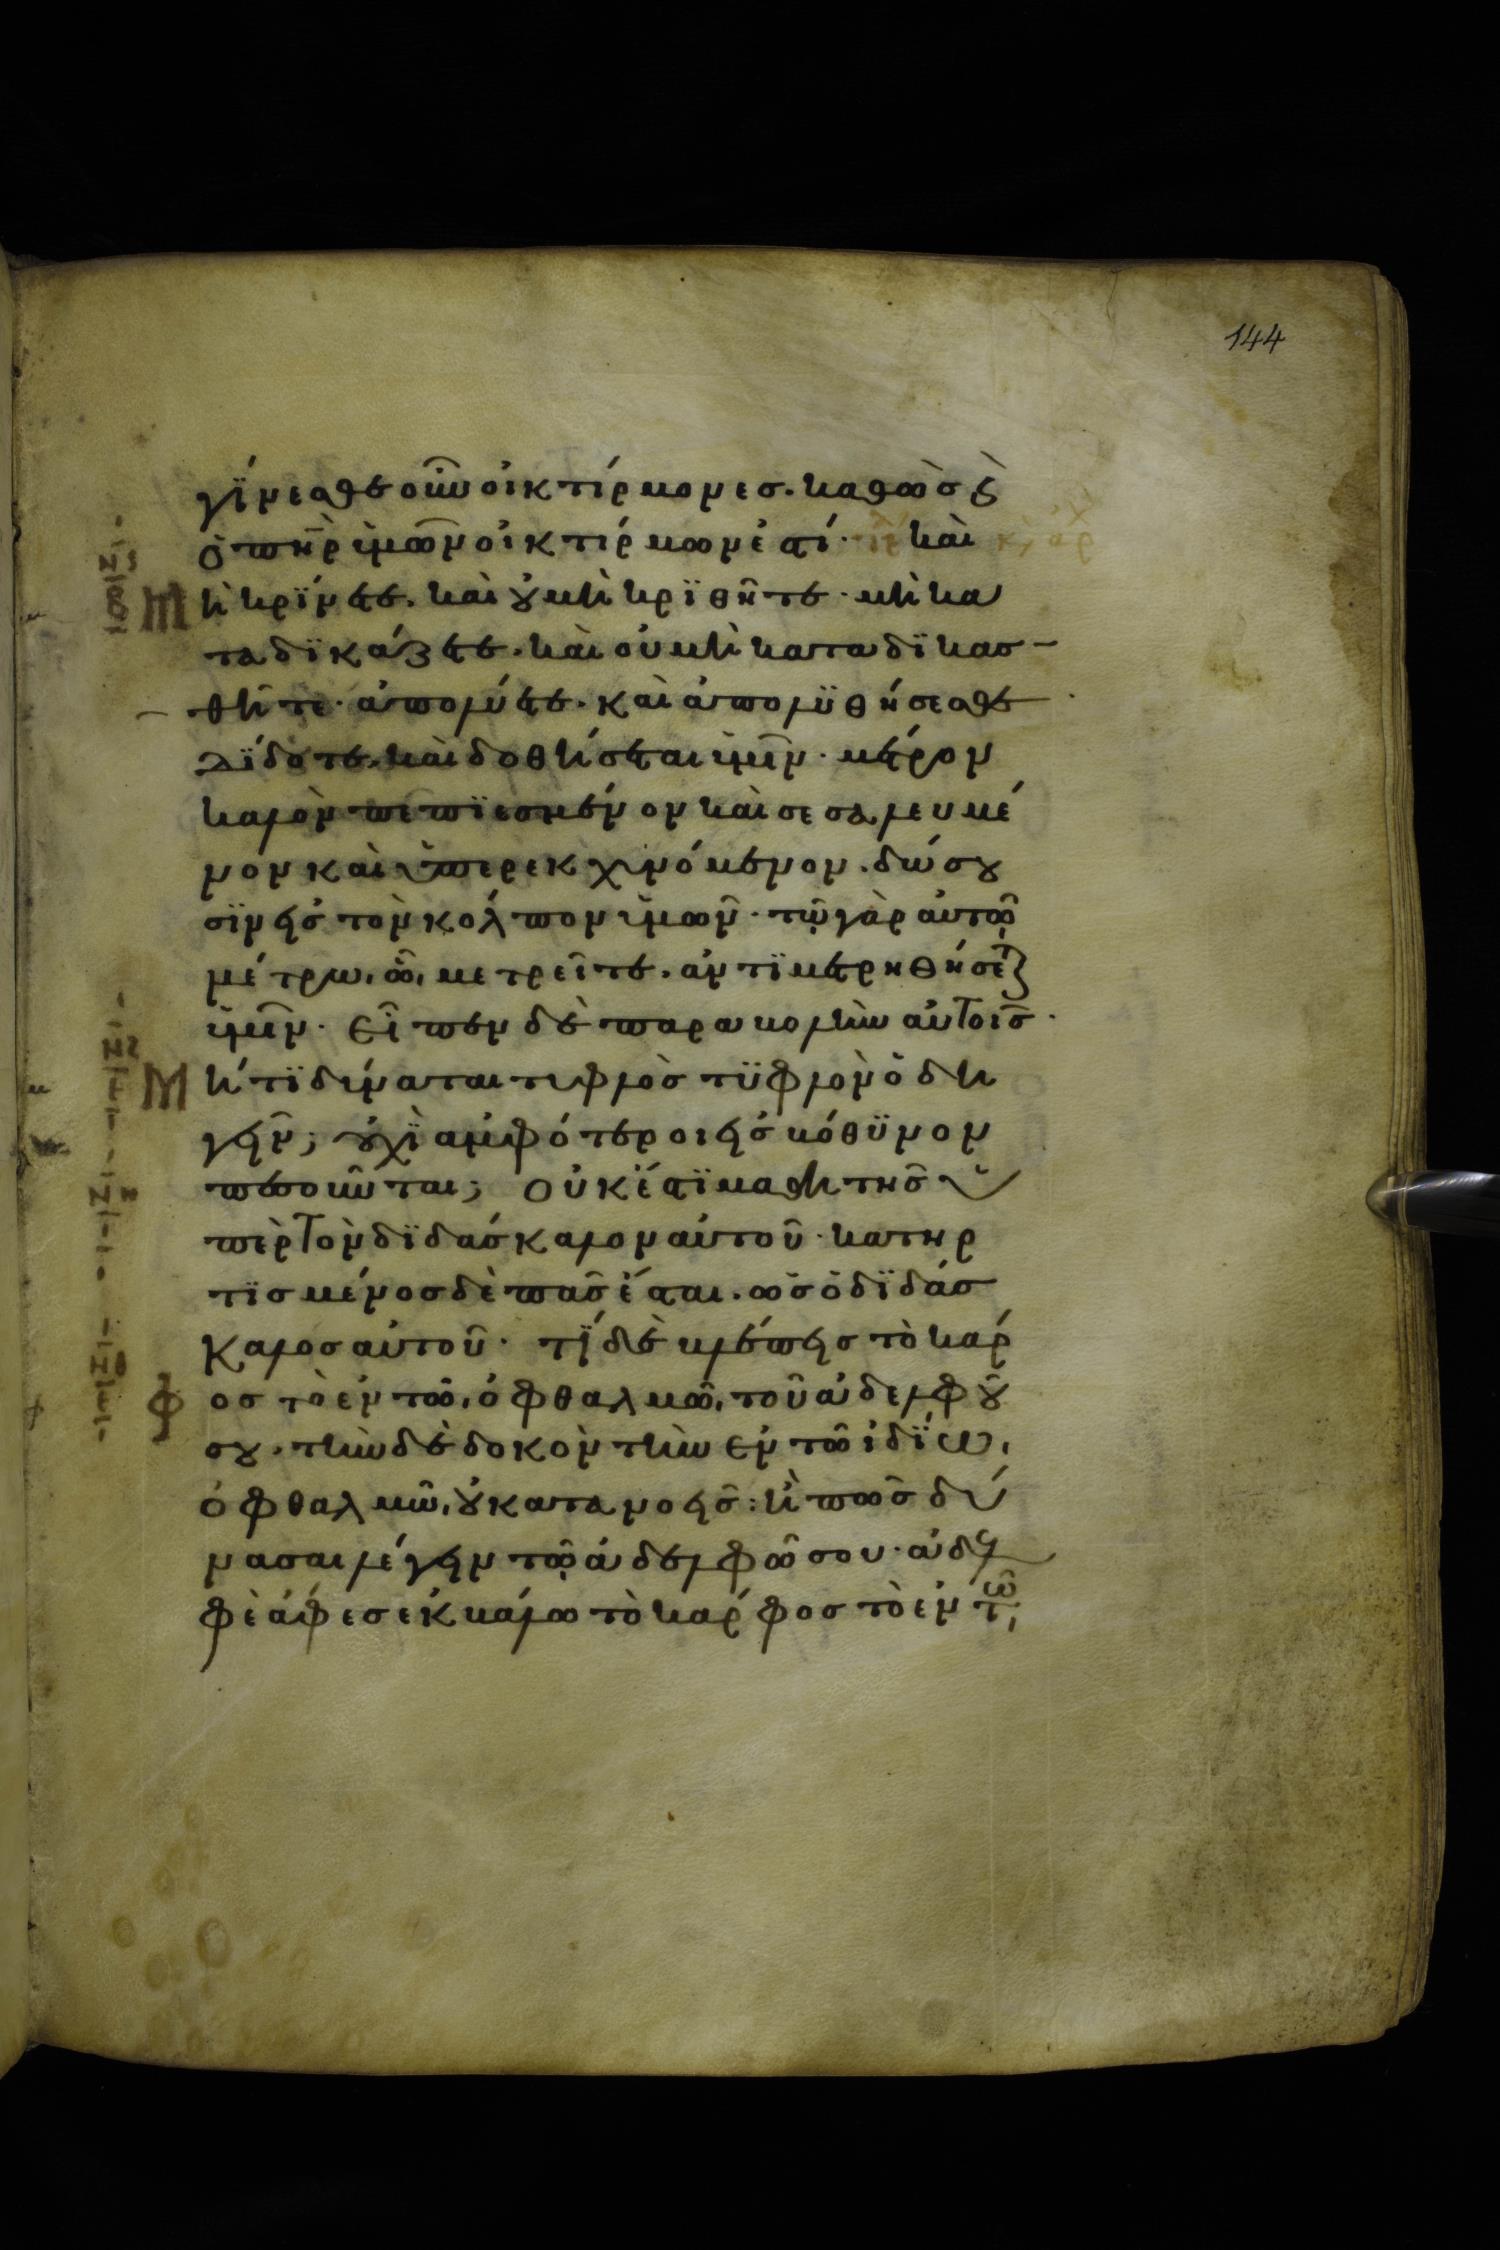 144
γΐνεσθε οὖν οἰκτίρμονες. καθὼς ϗ
ὁ πη̅ρ ὑμῶν οἰκτίρμων ἐστί· καὶ
Μὴ κρΐνετε. καὶ ȣ μὴ κρϊθῆτε· μὴ κα
ταδϊκάζετε. καὶ οὐ μὴ καταδϊκασ
θῆτε· ἀπολύετε. καὶ ἀπολϋθήσεσθε
Δΐδοτε. καὶ δοθήσεται ὑμῖν· μέτρον
καλὸν πεπϊεσμένον καὶ σεσαλευμέ
νον καὶ ὑπερεκχυνόμενον. δώσȣ
σϊν εἰς τὸν κόλπον ὑμῶν· τῷ γὰρ αὐτῷ
μέτρω, ᾧ, μετρεῖτε. ἀντϊμετρηθήσετ(αι)
ὑμῖν· Εἶπεν δὲ παραβολὴν αὐτοῖς·
Μήτϊ δύναται τυφλὸς τϋφλὸν ὁδη
γεῖν; ȣχῒ ἀμφότεροι εἰς βόθϋνον
πεσοῦνται; Οὐκ ἔστϊ μαθητὴς ὑ
πὲρ τὸν δϊδάσκαλον αὐτοῦ· κατηρ
τϊσμένος δὲ πᾶς ἔσται. ὡς ὁ δϊδάσ
καλος αὐτοῦ· τΐ δὲ βλέπεις τὸ κάρ
φος τὸ ἐν τῶ, ὀφθαλμῶ, τοῦ ἀδελφȣ
σȣ. τὴν δὲ δοκὸν τὴν ἐν τῶ ἰδΐω,
ὀφθαλμῶ, ȣ κατανοεῖς: ἢ πῶς δύ
νασαι λέγειν τῷ ἀδελφῶ σου· ἀδελ
φὲ ἄφες ἐκβάλω τὸ κάρφος τὸ ἐν τῶ,